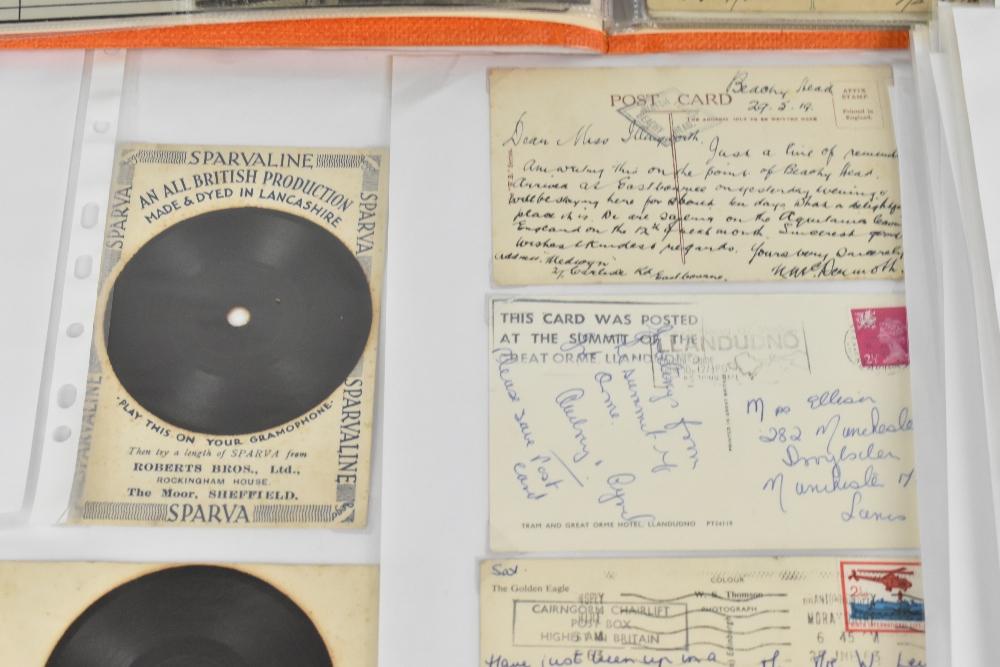 SPARVALINE
AN ALL BRITISH PRODUCTION
MADE & DYED IN LANCASHIRE
SPARVA
SPARVA
SPARVALINE
SPARVALINE
·PLAY THIS ON YOUR GRAMOPHONE·
Then try a length of SPARVA from
ROBERTS BROS., Ltd.,
ROCKINGHAM HOUSE.
The Moor, SHEFFIELD.
SPARVA
POST CARD
THE ADDRESS ONLY TO BE WRITTEN HERE
AFFIX
STAMP
Printed in
England.
BEACHY HEAD
Beachy Head
29.5.19.
Dear Miss
Just a line of
Am writing this on the point of Beachy Head.
Arrived at Eastbourne on yesterday evening &
will be staying here for about ten days. What a
place it is. We are sailing on the Aquitania
England on the 12th of next month. Sincerest
wishes & kindest regards. Yours very sincerely
Address
Eastbourne.
THIS CARD WAS POSTED
AT THE SUMMIT OF THE
GREAT ORME LLANDUDNO
LLANDUDNO
2½
Greetings from
the summit of
Orme.
Audrey, Cyril
Please save Post
card
Mrs Ellison
282 Manchester
Droylsden
Manchester
Lancs
TRAM AND GREAT ORME HOTEL, LLANDUDNO PT24118
Sat.
The Golden Eagle
COLOUR
W. S. Thomson
PHOTOGRAPH
CAIRNGORM CHAIRLIFT
POST BOX
HIGHEST IN BRITAIN
2½
MORAY
6 45
Have just been up in a